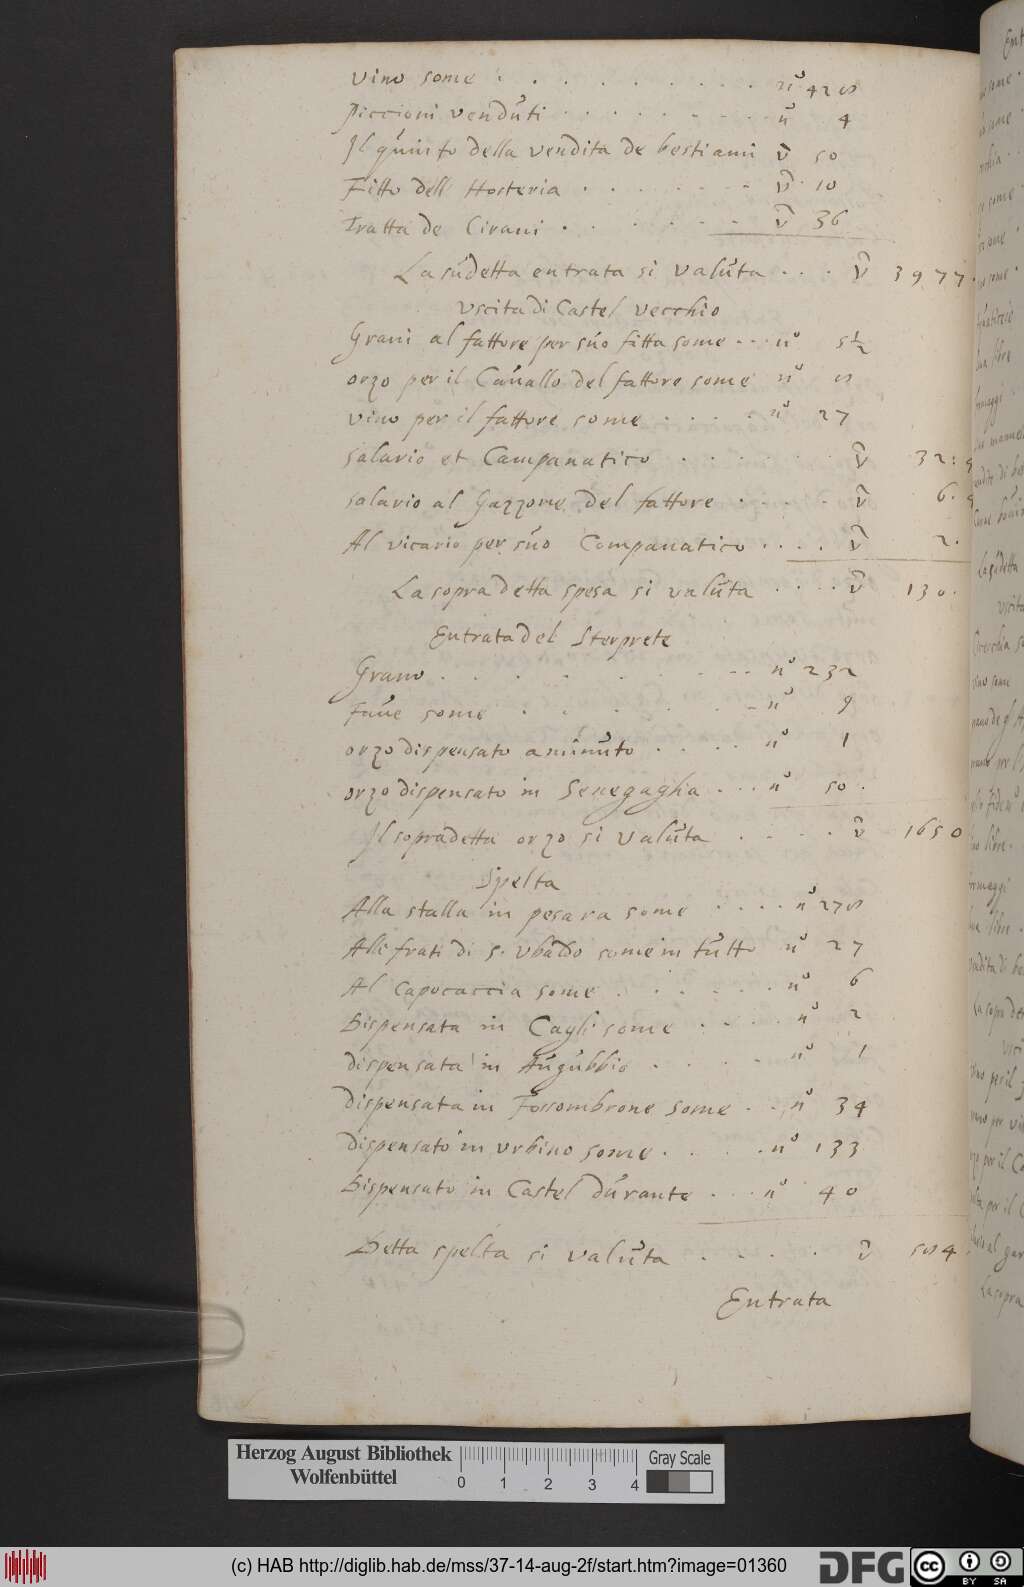 Vino some . . . . . . . . . . n° 428
Piccioni venduti . . . . . . . . n° 4
Il quinto della vendita de bestiami ▽ 50
Fitto dell Hosteria . . . . . . . ▽ 10
Tratta de Cirani . . . . . . . ▽ 36
La sudetta entrata si valuta . . . ▽ 3977.
Uscita di Castel vecchio
Grani al fattore per suo fitto some . . . n° 5½
orzo per il Cauallo del fattore some n° 8
vino per il fattore some . . . . n° 27
salario et Companatico . . . . . . ▽ 32:
salario al Gazzone del fattore . . . . . ▽ 6.
Al vicario per suo Companatico . . . . ▽ 2.
La sopradetta spesa si valuta . . . . ▽ 130.
Entrata del Sterprete
Grano . . . . . . . . n° 232
Faue some . . . . . . n° 9
orzo dispensato a minuto . . . . . n° 1
orzo dispensato in Senegaglia . . . n° 50.
Il sopradetta orzo si valuta . . . . . ▽ 1650
Spelta
Alla stalla in pesara some . . . . n° 278
Alli frati di S. Vbaldo some in tutto n° 27
Al capocaccia some . . . . . . n° 6
Dispensata in Cagli some . . . . n° 2
dispensata in Augubbio . . . . . n° 1
dispensata in Fossombrone some . . n° 34
dispensato in vrbino some . . . . . n° 133
Dispensato in Castel durante . . . n° 40
Detta spelta si valuta . . . . . ▽ 584
Entrata
Herzog August Bibliothek
Wolfenbüttel
0 1 2 3 4
Gray Scale
(c) HAB http://diglib.hab.de/mss/37-14-aug-2f/start.htm?image=01360
DFG
cc BY SA